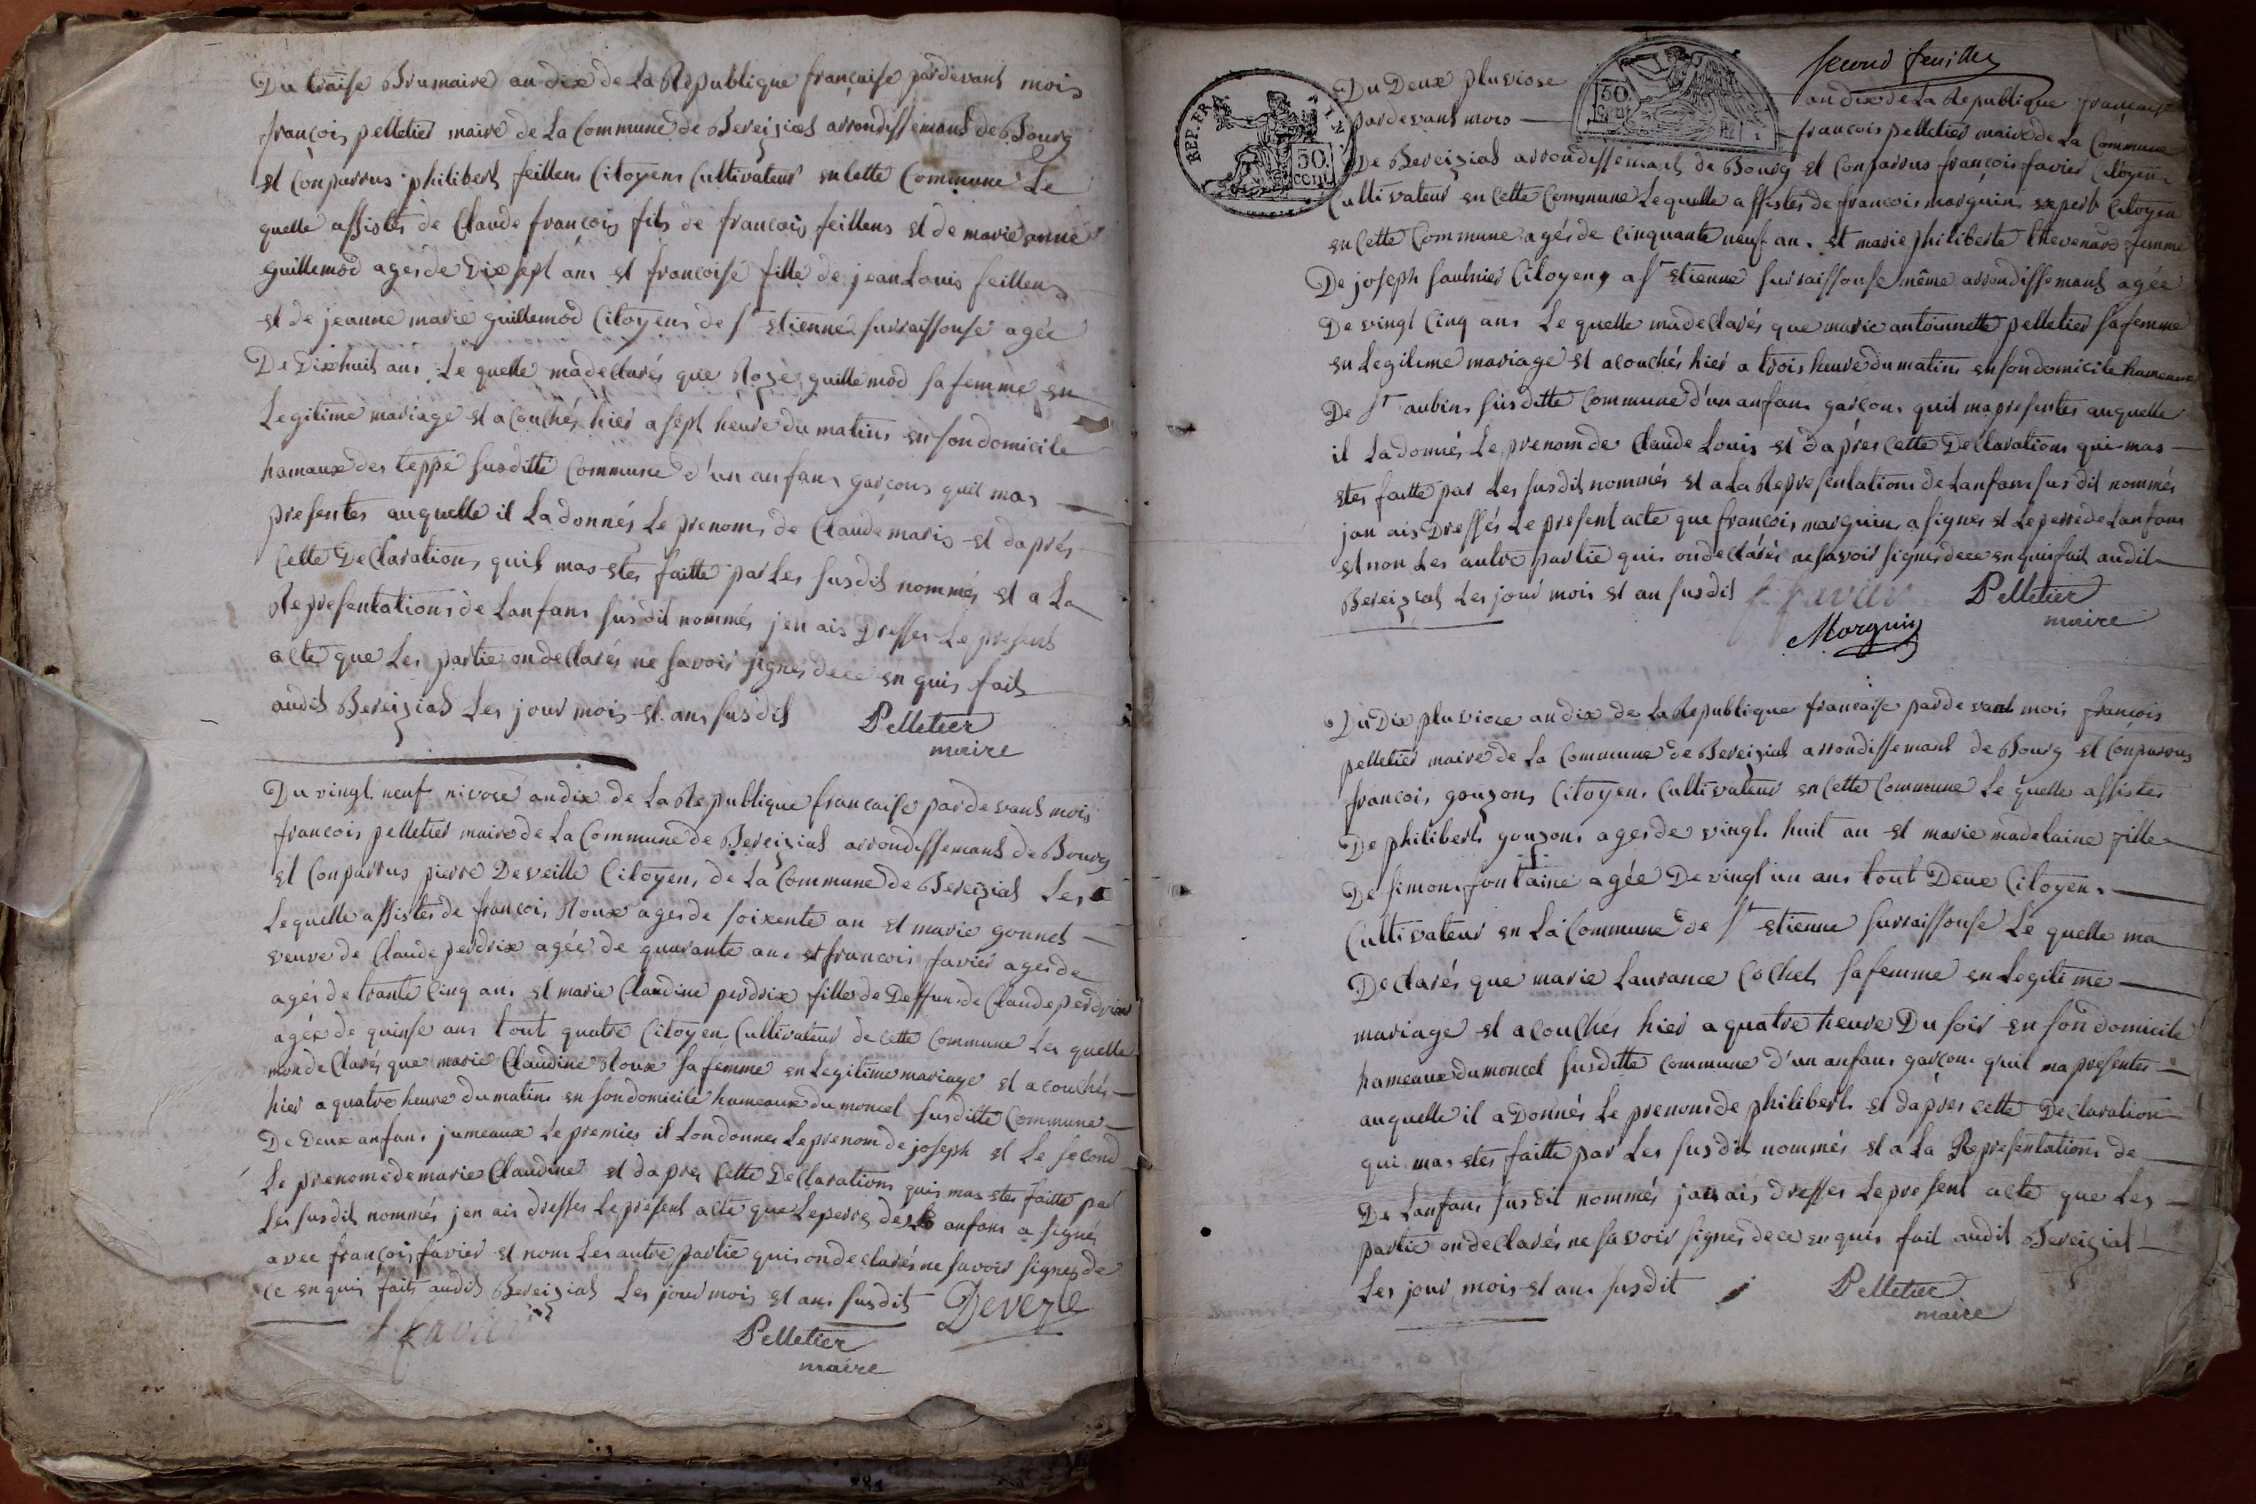 Du traise Brumaire an dix de La Republique française pardevant mois
françois pelletier maire de La Commune de Bereiziat arrondissemant de Bourg
et Conparrus philibert feillens Citoyens Cultivateur en Cette Commune Le
quelle assistés de Claude françois fils de françois feillens et de marie anne
guillemod ages de Dix sept ans et françoise fille de jean Louis feillens
et de jeanne marie guillemod Citoyens de St etienne surraissouse agée
De Dixhuit ans Le quelle ma declarés que Roze guillemod sa femme en
Legitime mariage et acouchés hier a sept heure du matins en son domicile
hamaux des teppe susditte Commune d'un anfans garcons quil mas
presentes auquelle il La donnés Le prenoms de Claude maris et daprés
Cette Declarations quils mas etes faitte par Les susdits nommés et a La
Representations de Lanfans susdit nommés jen ais Dresser Le present
acte que Les partie on declarés ne savoir signes de ce en quis fait
audit Bereiziat Les jour mois et ans susdits Pelletier
maire
Du vingt neuf nivose an dix de La Republique française par devant mois
francois pelletier maire de La Commune de Bereiziat arrondissemant de Bourg
et Conparrus pierre Deveille Citoyens de La Commune de Bereiziat Les
Lequelle assistés de françois Roux ages de soixente an et marie gonnet
veuve de Claude perdrix agée de quarante ans et francois favier ages de
agés de trante Cinq ans et marie Claudine perdrix filles de Deffun de Claude perdrix
agée de quinse ans tout quatre Citoyen Cultivateur de cette Commune Les quelle
mon de Clarés que marie Claudine Roux sa femme en Legitime mariage et acouchés
hier a quatre heure du matins en son domicile hameaux du moncel susditte Commune
De Deux anfans jumeaux Le premies il Lon donnes Le prenom de joseph et Le second
Le prenome de marie Claudine et da pres Cette Declarations quis mas etes faitte par
Les susdits nommés jen ais dresser Le present acte que Le perre des anfans a signés
avec françois favier et nom Les autre partie quis on declarés ne savoir signes de
ce en quis faits audit Bereiziat Les jour mois et ans susdits Deveyle
f favier
Pelletier
maire
second feuille
REP. FRA.
50. cent.
50. cent.
Du Deux pluviose an dix de La Republique française
pardevant mois françois pelletier maire de La Commune
De Bereiziat arrondissemant de Bourg et Conparrus françois favier Citoyen
Cultivateur en Cette Commune Lequelle assistes de francois marguins expert Citoyen
en Cette Commune agés de Cinquante neuf an et marie philiberte thevenard femme
De joseph saulnier Citoyens a St etienne surraissouse même arrondissemant agée
De vingt Cinq ans Le quelle ma declarés que marie antoinnette pelletier sa femme
en Legitime mariage et acouchés hier a trois heure du matins en son domicile hameaux
De St aubins susditte Commune d'un anfans garçons quil ma presentes auquelle
il La donnés Le prenom de Claude Louis et da pres Cette Declarations qui mas
etes faitte par Les susdits nommés et a La Representations de Lanfans susdit nommés
jan ais Dressés Le present acte que françois marguins a signes et Le perre de Lanfans
et non Les autre partie quis on declarés ne savoir signes de ce en quis fait audit
Bereiziat Les jour mois et an susdits f favier Pelletier
maire
Morguin
Du Dix pluviose an dix de La Republique francaise par devant mois françois
pelletier maire de La Commune de Bereiziat arrondissemant de Bourg et Conparrus
françois gouzons Citoyens Cultivateur en Cette Commune Le quelle assistes
De philiberts gouzons ages de vingts huit an et marie madelaine fille
De simons fontaine agée De vingt un ans tout Deux Citoyens
Cultivateur en La Commune de St etienne surraissouse Le quelle ma
Declarés que marie Laurance Cochet sa femme en Legitime
mariage et acouchés hier a quatre heure Du soir en son domicile
hameaux du moncel susditte Commune d'un anfans garcons quil ma presentes
auquelle il a Donnés Le prenoms de philiberts et da pres Cette Declaration
qui mas etes faitte par Les susdits nommés et a La Representations de
De Lanfans susdit nommés jan ais dresser Le present acte que Les
partie on declarés ne savoir signes de ce en quis fait audit Bereiziat
Les jour mois et ans susdit Pelletier
maire